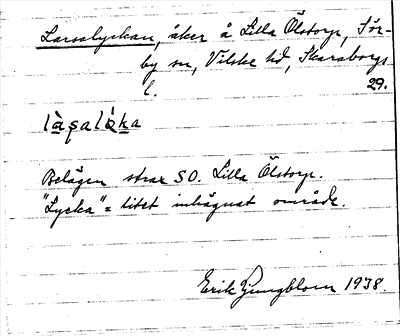 Larsalyckan, åker å Lilla Ölstorp, Sör-
by sn, Vilske hd, Skaraborgs
l. 29.
làșalỳka
Belägen strax SO. Lilla Ölstorp.
"Lycka" = litet inhägnat område.
Erik Ljungblom 1938.